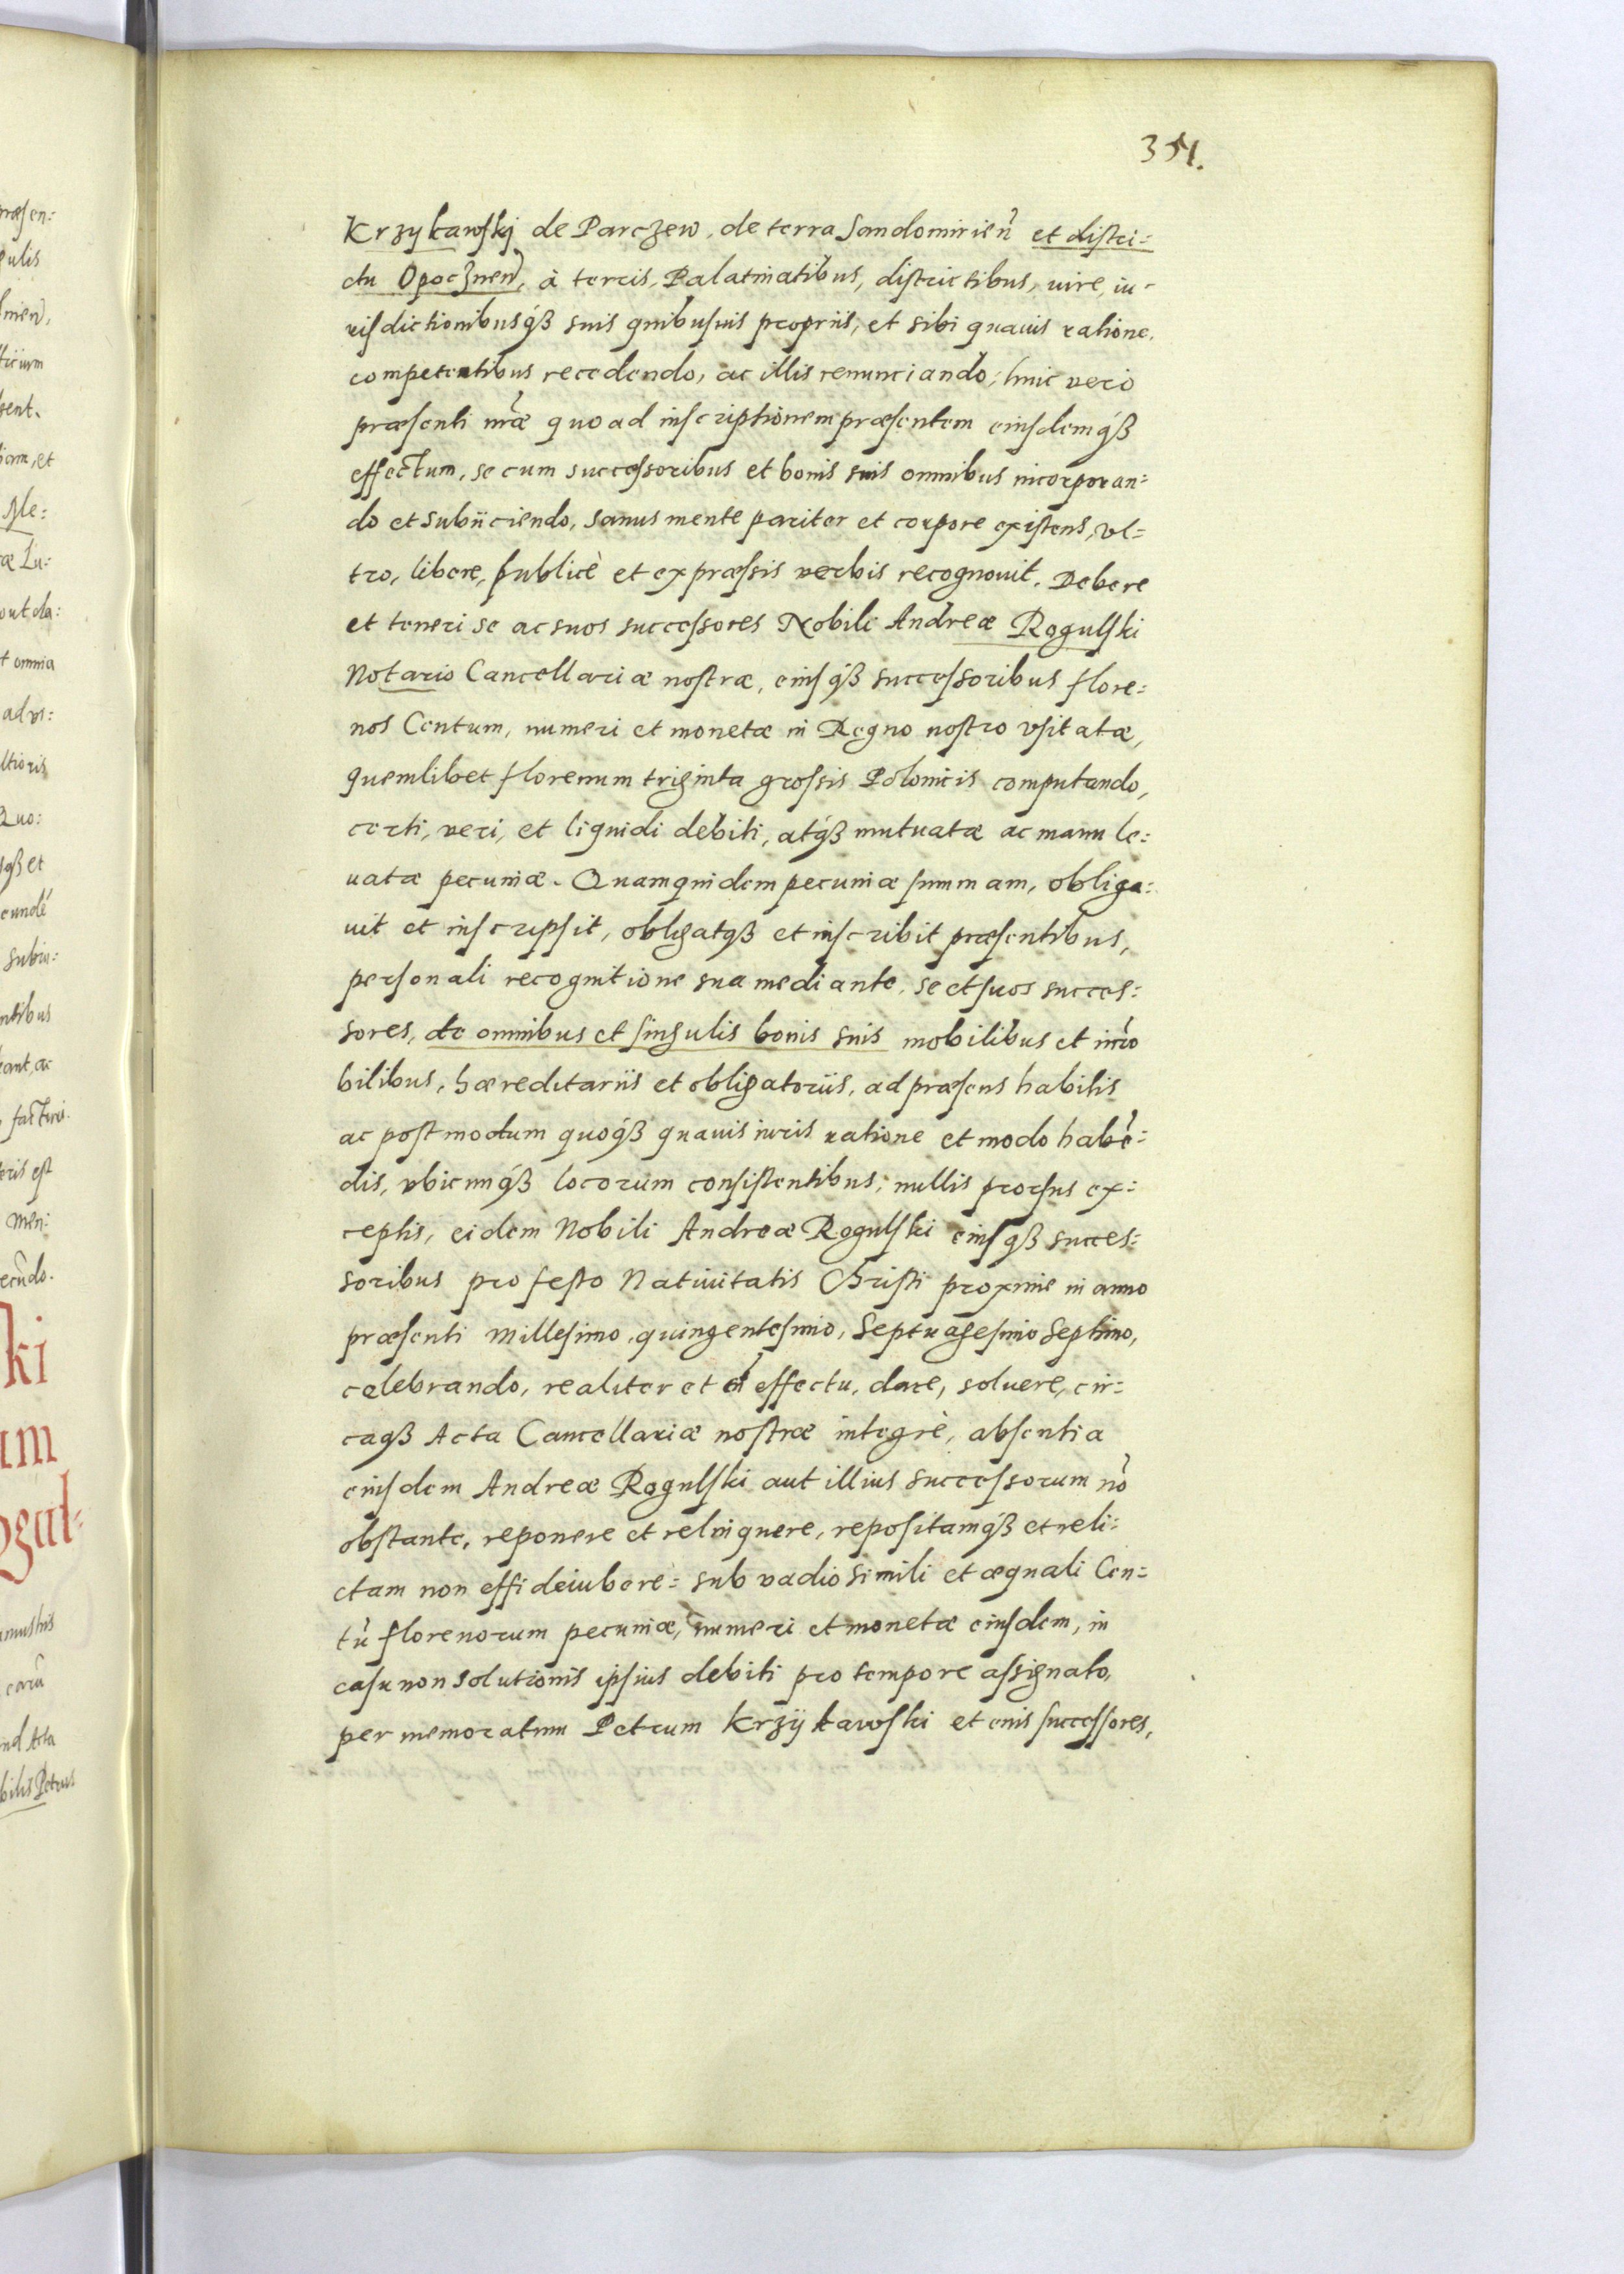 351.
Krzykawskij de Parczew, de terra Sandomirien̄ et distri:
ctu Opocznen̄, à terris, Palatinatibus, districtibus, iure, iu-
risdictionibusqß suis quibusuis propriis, et sibi quauis ratione.
competentibus recedendo, ac illis renunciando, huic vero
præsenti nr̄æ quo ad inscriptionem præsentem eiusdemqß
effectum, se cum successoribus et bonis suis omnibus incorporan:
do et subiiciendo, sanus mente pariter et corpore existens, vl=
tro, libere, publicè et expræssis verbis recognouit. Debere
et teneri se ac suos successores Nobili Andreæ Rogulski
Notario Cancellariæ nostræ, eiusqß successoribus flore:
nos Centum, numeri et monetæ in Regno nostro vsitatæ,
quemlibet florenum triginta grossis Polonicis computando,
certi, veri, et liquidi debiti, atqß mutuatæ ac manu le:
uatæ pecuniæ. Quamquidem pecuniæ summam, obliga:
uit et inscripsit, obligatqß et inscribit præsentibus,
personali recognitione sua mediante, se et suos succes:
sores, de omnibus et singulis bonis suis mobilibus et im̄o
bilibus, hæreditariis et obligatoriis, ad præsens habitis
ac postmodum quoqß quauis iuris ratione et modo habē:
dis, vbicunqß locorum consistentibus, nullis prorsus ex:
ceptis, eidem Nobili Andreæ Rogulski eiusqß succes:
soribus pro festo Natiuitatis Christi proxime in anno
præsenti millesimo, quingentesimo, Septuagesimo Septimo,
celebrando, realiter et cū effectu, dare, soluere, cir:
caqß Acta Cancellariæ nostræ integrè, absentia
eiusdem Andreæ Rogulski aut illius successorum nō
obstante, reponere et relinquere, repositamqß et reli:
ctam non effideiubere: sub vadio simili et æquali Cen:
tū florenorum pecuniæ, numeri et monetæ eiusdem, in
casu non solutionis ipsius debiti pro tempore assignato,
per memoratum Petrum Krzÿkawski et eius successores,